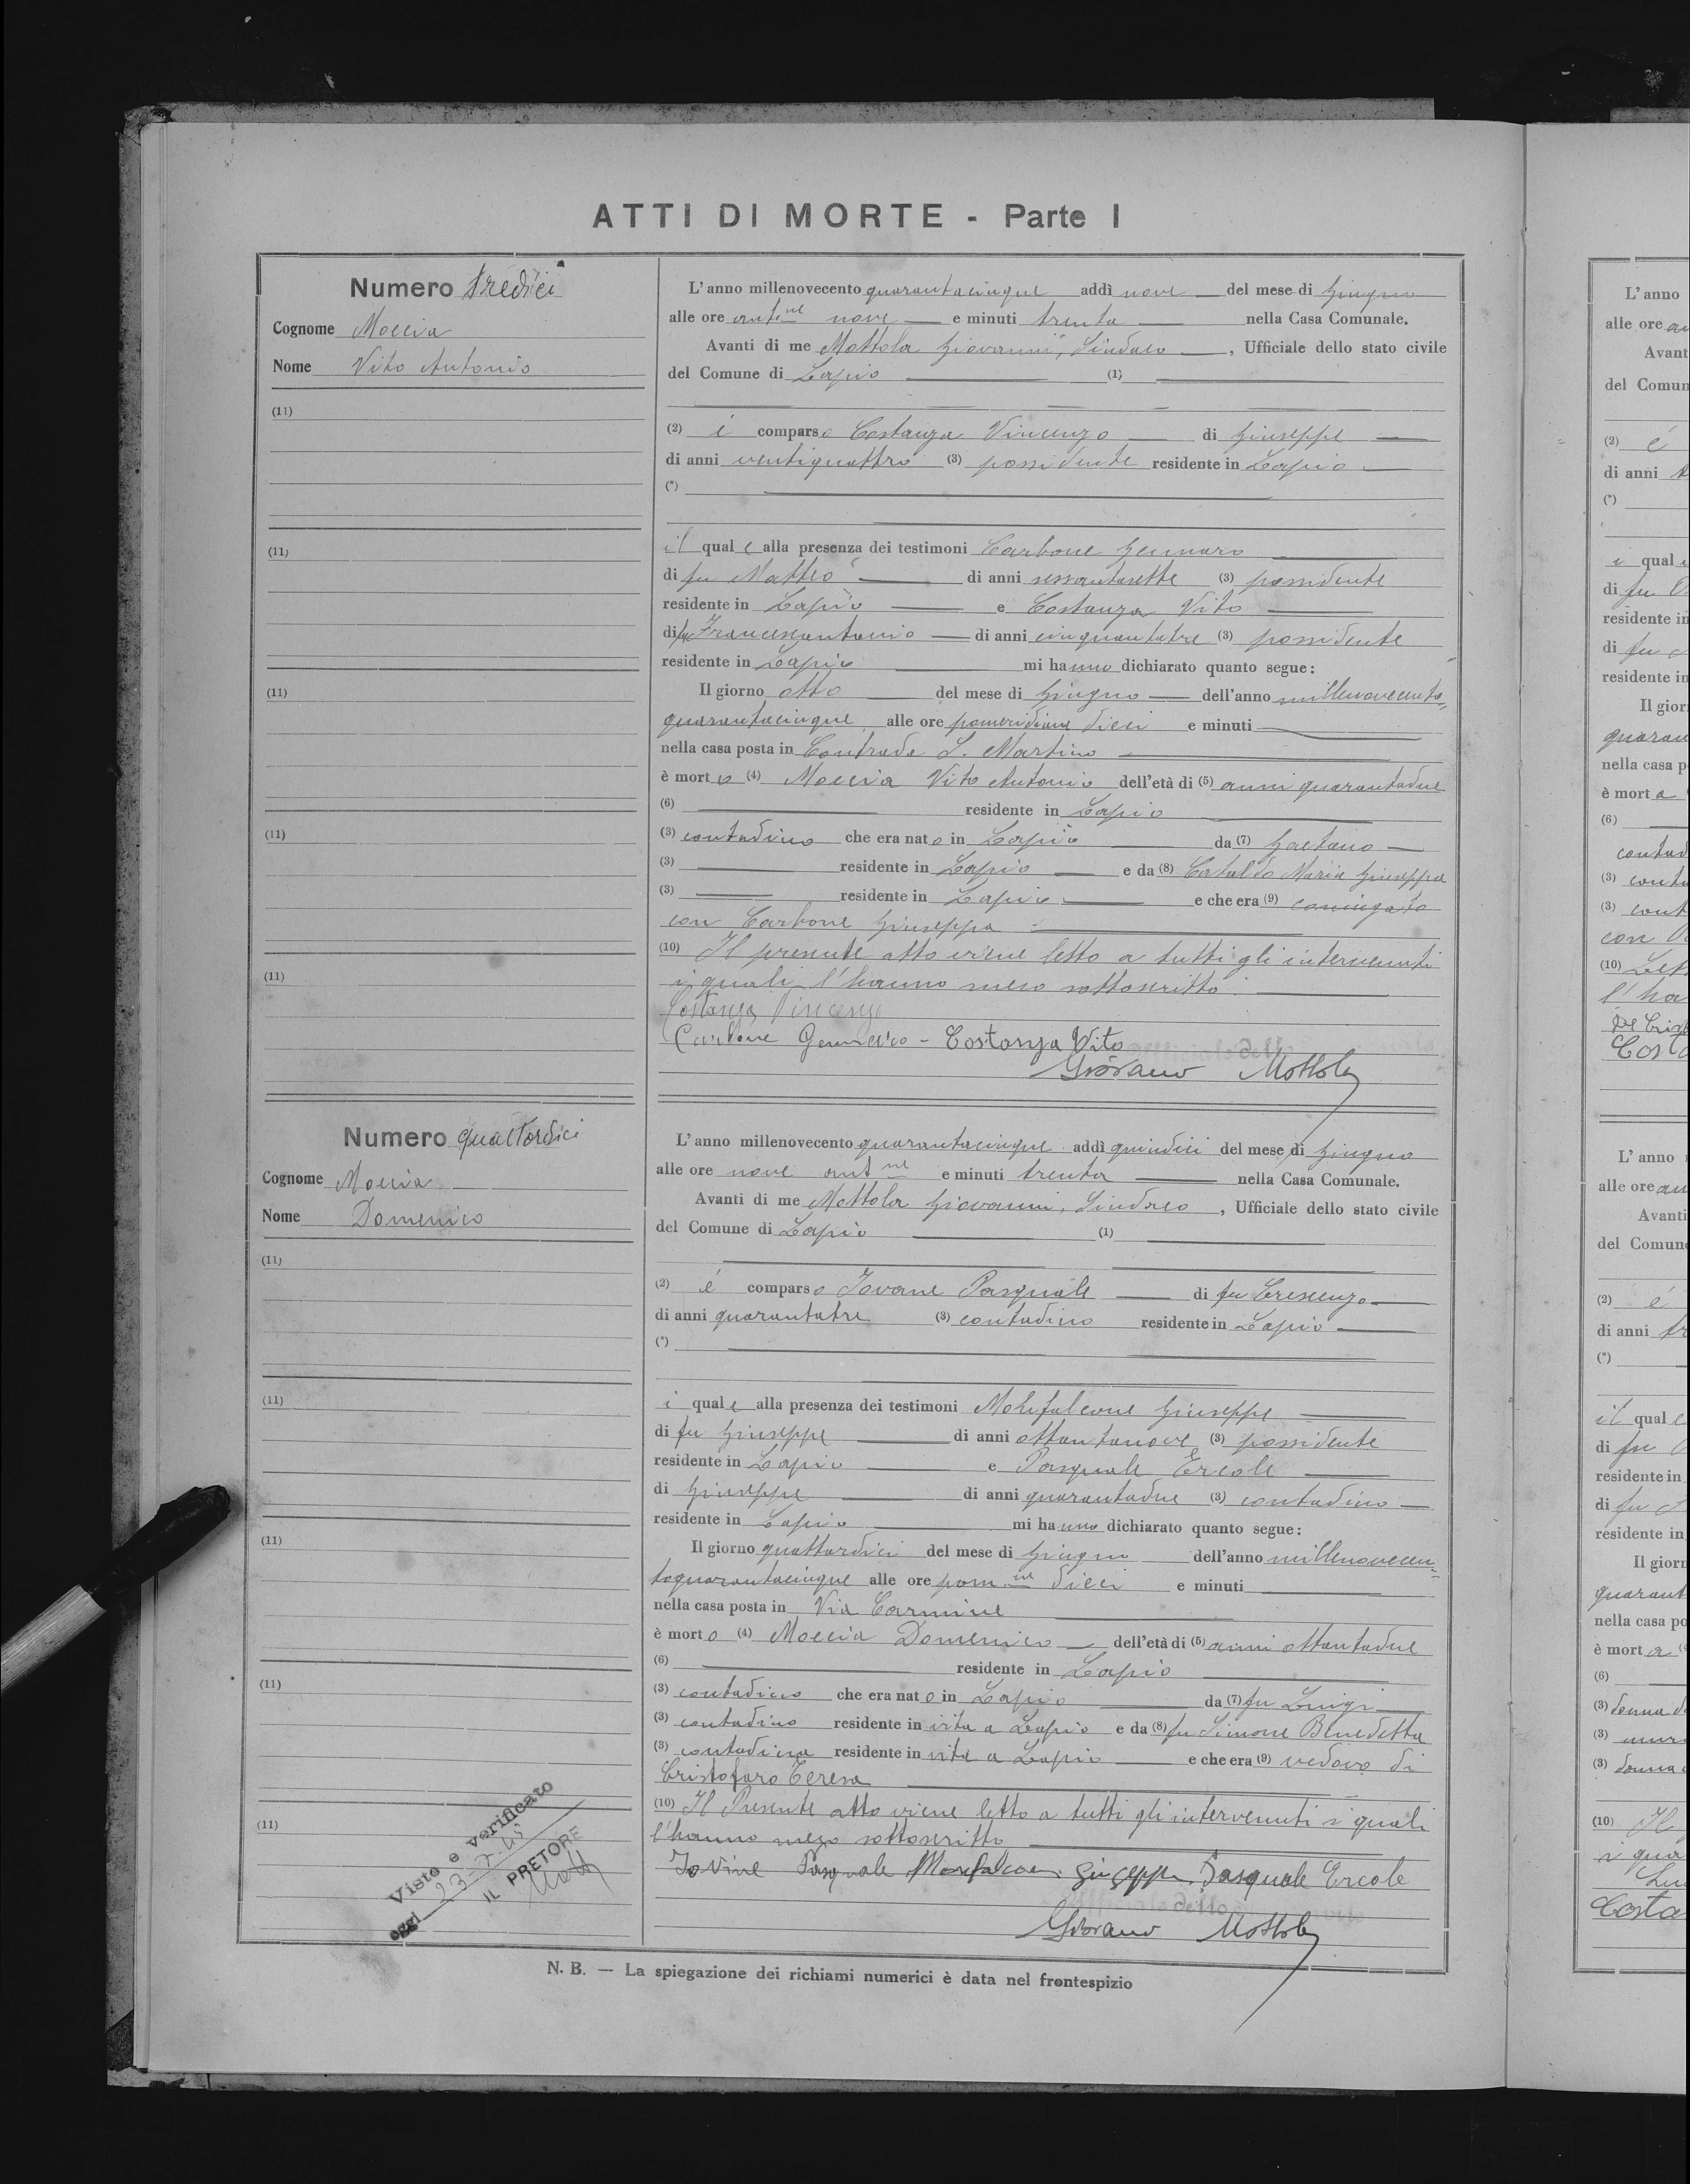 ATTI DI MORTE - Parte I
Numero tredici
Cognome Moccia
Nome Vito Antonio
(11)
(11)
(11)
(11)
(11)
L'anno millenovecento quarantacinque addì nove del mese di Giugno
alle ore antine nove e minuti trenta nella Casa Comunale.
Avanti di me Mottola Giovanni, Sindaco, Ufficiale dello stato civile
del Comune di Lapio (1)
(2) è comparso Costanza Vincenzo di Giuseppe
di anni ventiquattro (3) possidente residente in Lapio
(*)
il quale alla presenza dei testimoni Carbone Gennaro
di fu Matteo di anni sessantasette (3) possidente
residente in Lapio e Costanza Vito
di fu Francescantonio di anni cinquantatre (3) possidente
residente in Lapio mi hanno dichiarato quanto segue:
Il giorno otto del mese di Giugno dell'anno millenovecento
quarantacinque alle ore pomeridiane dieci e minuti
nella casa posta in Contrada S. Martino
è morto (4) Moccia Vito Antonio dell'età di (5) anni quarantadue
(6) residente in Lapio
(3) contadino che era nato in Lapio da (7) Gaetano
(3) residente in Lapio e da (8) Cataldo Maria Giuseppa
(3) residente in Lapio e che era (9) coniugato
con Carbone Giuseppa
(10) Il presente atto viene letto a tutti gli intervenuti
i quali l'hanno meco sottoscritto.
Costanza Vincenzo
Carbone Gennaro - Costanza Vito
Giovanni Mottola
Numero quattordici
Cognome Moccia
Nome Domenico
(11)
(11)
(11)
(11)
(11)
Visto e verificato
oggi 23-7-45
IL PRETORE
L'anno millenovecento quarantacinque addì quindici del mese di Giugno
alle ore nove antne e minuti trenta nella Casa Comunale.
Avanti di me Mottola Giovanni, Sindaco, Ufficiale dello stato civile
del Comune di Lapio (1)
(2) è comparso Iovane Pasquale di fu Crescenzo
di anni quarantatre (3) contadino residente in Lapio
(*)
i quale alla presenza dei testimoni Monfalcone Giuseppe
di fu Giuseppe di anni ottantanove (3) possidente
residente in Lapio e Pasquale Ercole
di Giuseppe di anni quarantadue (3) contadino
residente in Lapio mi hanno dichiarato quanto segue:
Il giorno quattordici del mese di Giugno dell'anno millenovecen=
toquarantacinque alle ore pom.ne dieci e minuti
nella casa posta in Via Carmine
è morto (4) Moccia Domenico dell'età di (5) anni ottantadue
(6) residente in Lapio
(3) contadino che era nato in Lapio da (7) fu Luigi
(3) contadino residente in vita a Lapio e da (8) fu Simone Benedetta
(3) contadina residente in vita a Lapio e che era (9) vedovo di
Cristofaro Teresa
(10) Il Presente atto viene letto a tutti gli intervenuti i quali
l'hanno meco sottoscritto
Iovine Pasquale Monfalcone Giuseppe Pasquale Ercole
Giovanni Mottola
N. B. — La spiegazione dei richiami numerici è data nel frontespizio
L'anno
alle ore
Avant
del Comun
(2) è
di anni
(*)
i qual
di fu
residente in
di fu
residente in
Il gior
quaran
nella casa p
è morta
(6)
contad
(3) conta
(3) cont
con
(10) Lett
l'ha
De Cris
Costa
L'anno
alle ore an
Avanti
del Comun
(2) è
di anni tr
(*)
il quale
di fu
residente in
di fu
residente in
Il giorn
quarant
nella casa po
è morta
(6)
(3) donna d
(3)
(3) donna
(10) Il
i qua
Costa